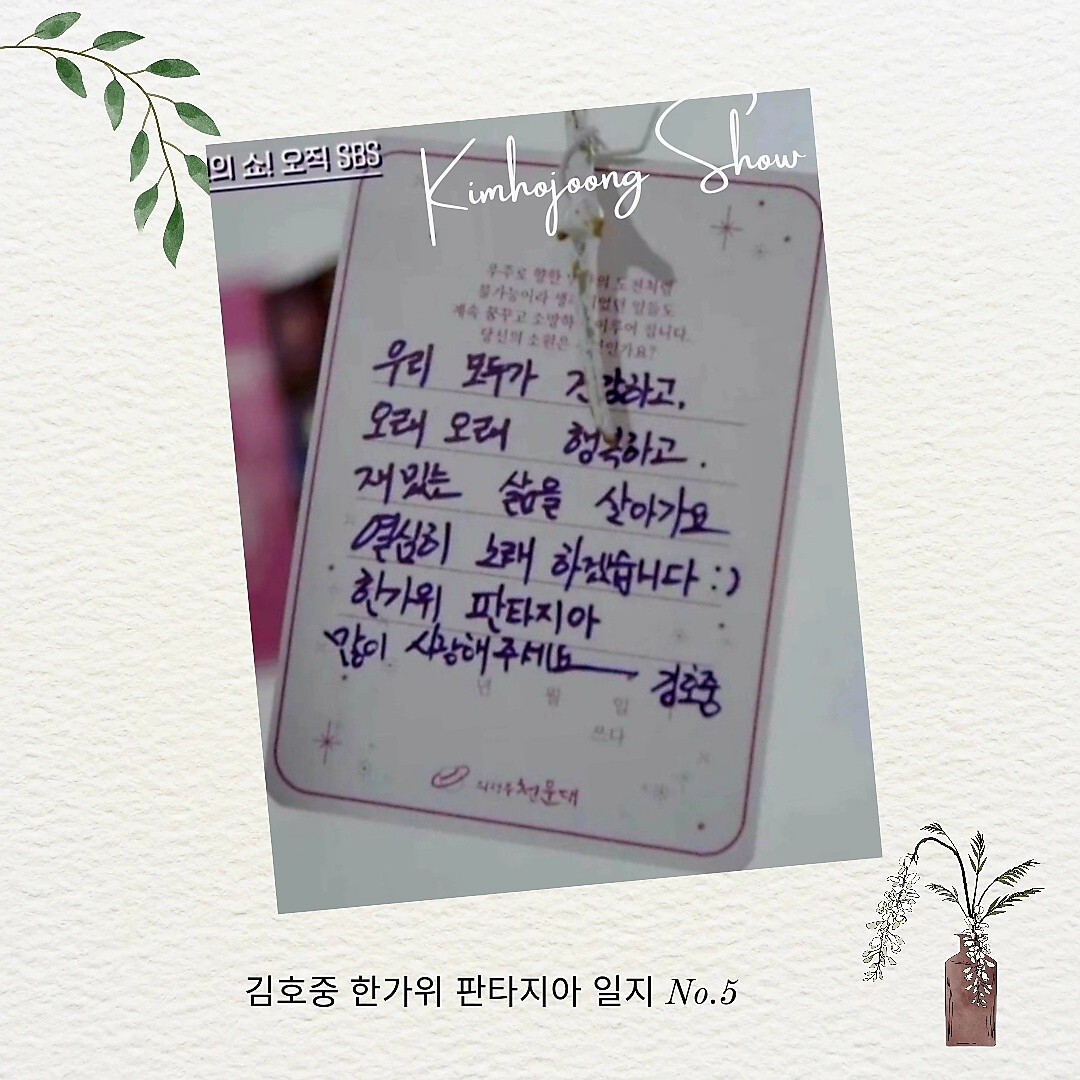 의 쇼! 오직 SBS
Kimhojoong Show
우주로 향한 도전처럼
불가능이라 일들도
계속 꿈꾸고 소망하 이루어 집니다.
당신의 소원은
우리 모두가 건강하고,
오래 오래 행복하고.
재밌는 삶을 살아가요
열심히 노래 하겠습니다 :)
한가위 판타지아
많이 시랑해주세요
김호중
년 월 일
쓰다
천문대
김호중 한가위 판타지아 일지 No.5